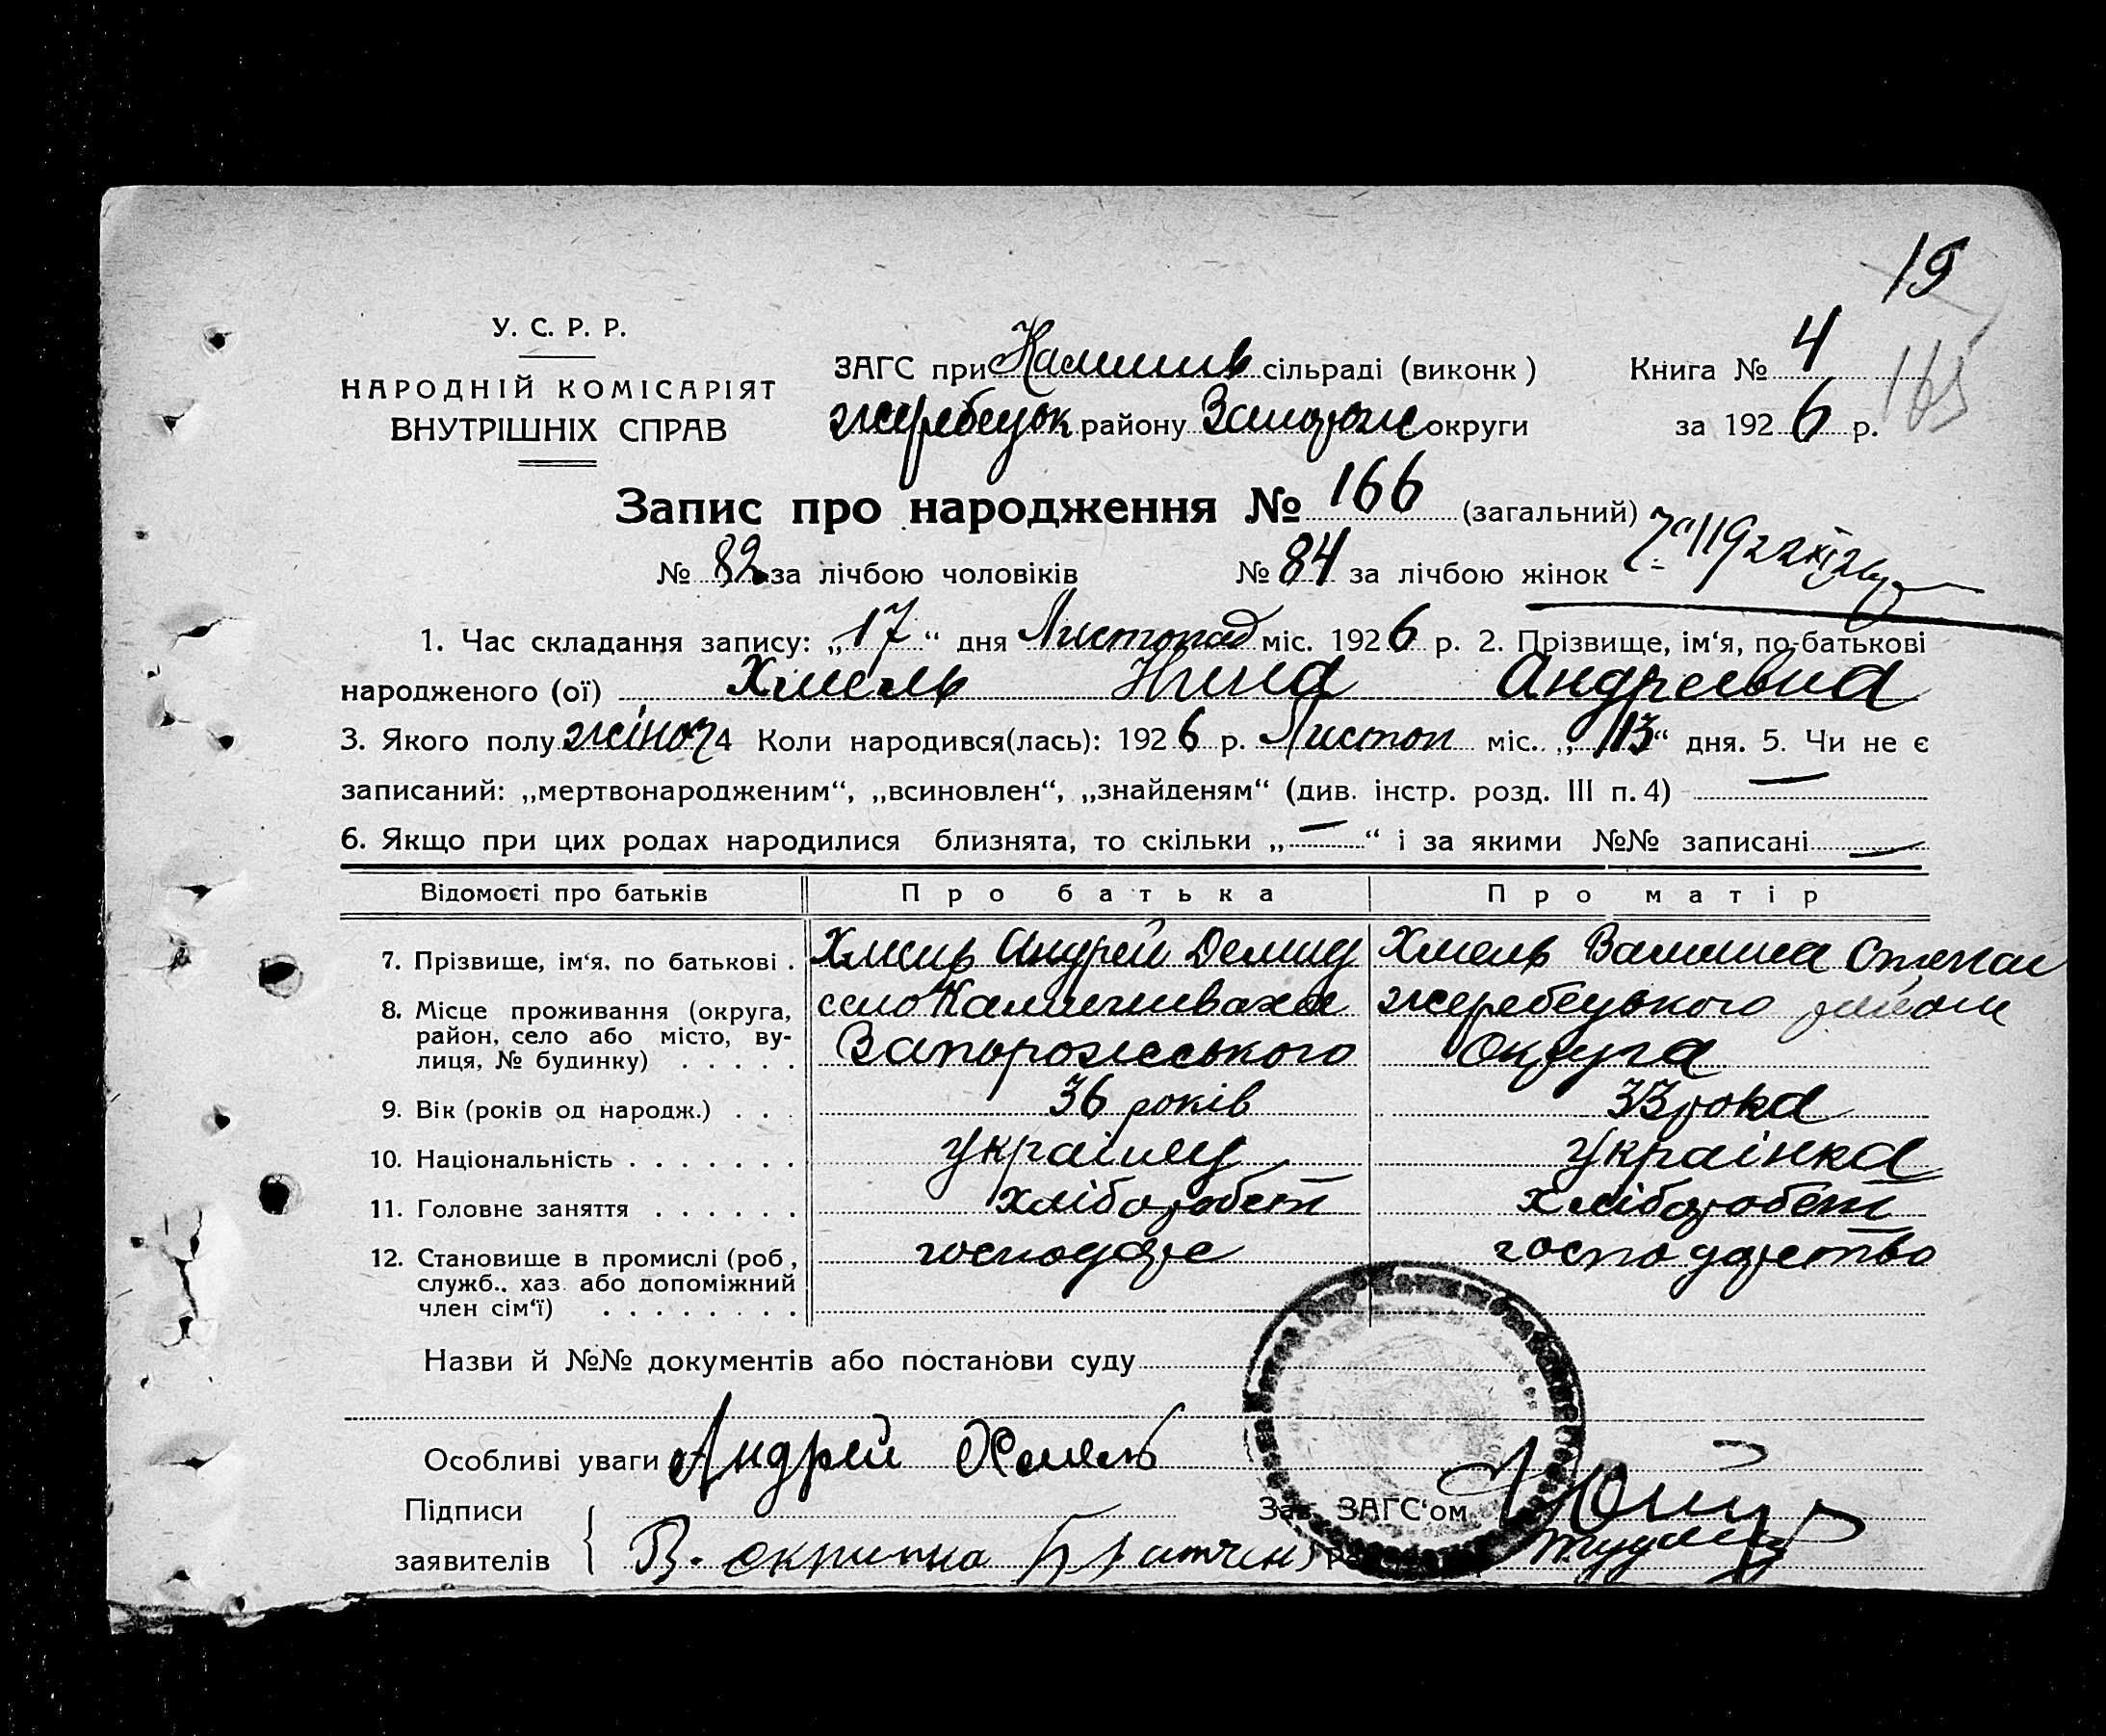 19
У. С. Р. Р.
НАРОДНІЙ КОМІСАРІЯТ
ВНУТРІШНІХ СПРАВ
ЗАГС при Камишив сільраді (виконк)
Жеребецьк району Запорож округи
Книга № 4
165
за 1926 р.
Запис про народження № 166 (загальний)
№ 82 за лічбою чоловіків № 84 за лічбою жінок
1. Час складання запису: „17“ дня Листопад міс. 1926 р. 2. Прізвище, ім‘я, по-батькові
народженого (ої) Хмель Нина Андреевна
3. Якого полу жіноч 4 Коли народився(лась): 1926 р. Листоп міс. „13“ дня. 5. Чи не є
записаний: „мертвонародженим“, „всиновлен“, „знайденям“ (див. інстр. розд. III п. 4) —
6. Якщо при цих родах народилися близнята, то скільки „—“ і за якими №№ записані —
Відомості про батьків Про батька Про матір
7. Прізвище, ім‘я, по батькові . Хмель Андрей Демид Хмель Степан
8. Місце проживання (округа, село Жеребецького
район, село або місто, ву- Запорожського Округа
лиця, № будинку) . . . . .
9. Вік (років од народж.) . . . 36 років 33 рока
10. Національність . . . . . . . Українец Українка
11. Головне заняття . . . . . . хлібороб хлібороб
12. Становище в промислі (роб, господар
служб., хаз. або допоміжний
член сім‘ї) . . . . . . . .
Назви й №№ документів або постанови суду
Особливі уваги Андрей Хмель
Підписи Зав. ЗАГС‘ом
заявителів { В. Скрипка